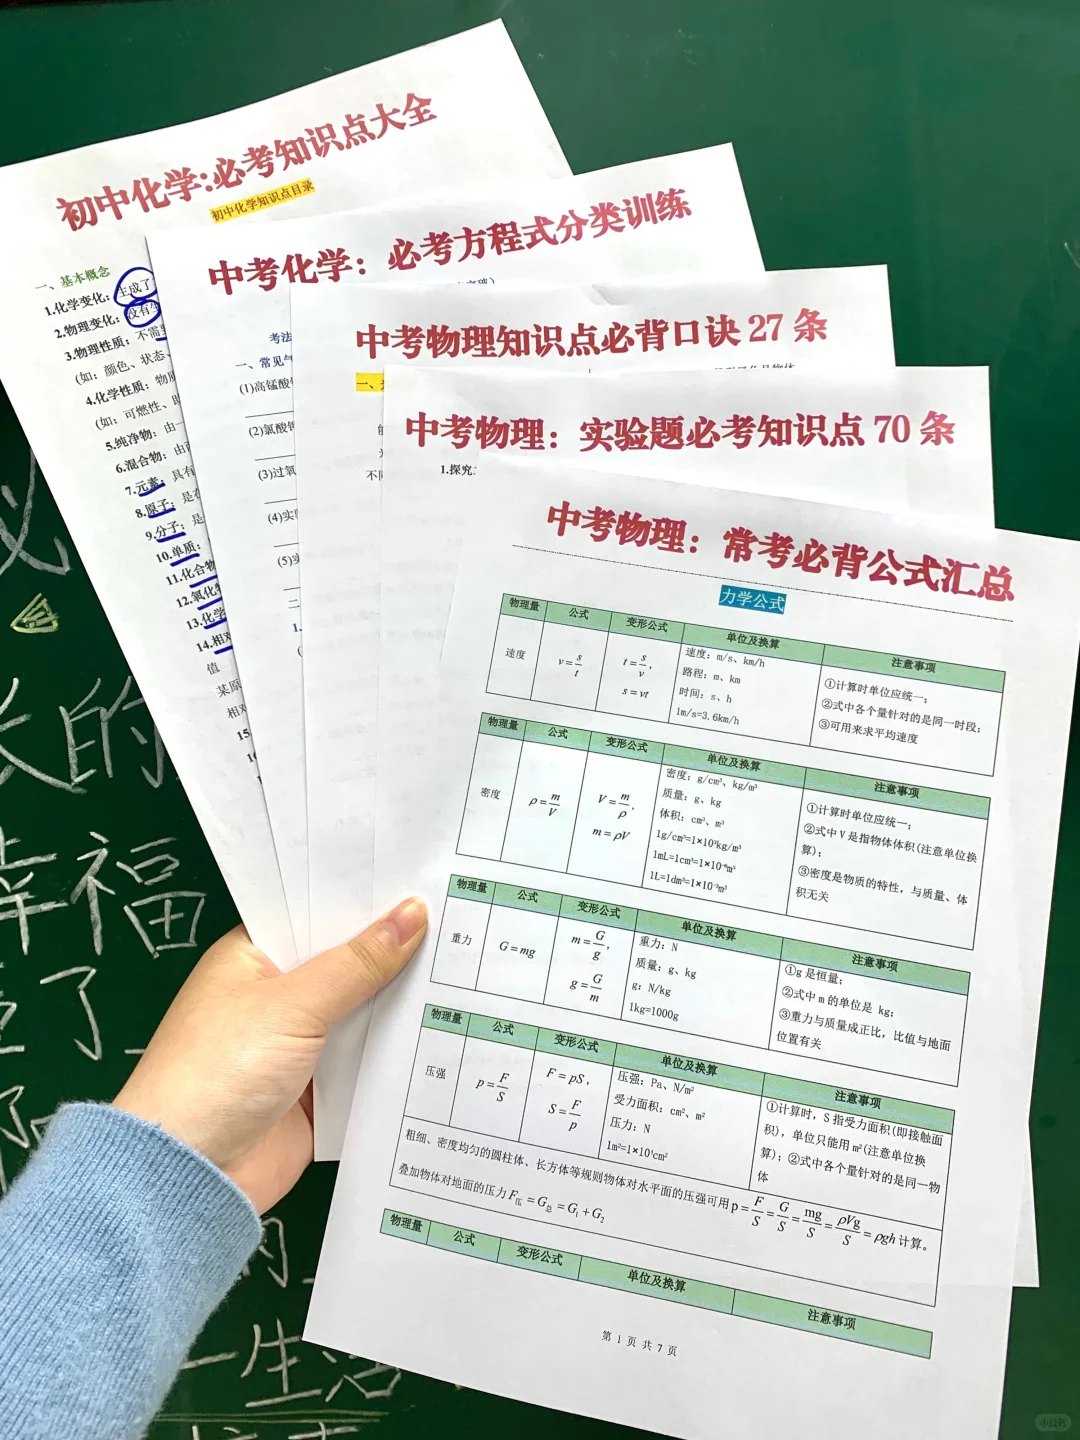 初中化学:必考知识点大全
初中化学知识点目录
一、基本概念
1.化学变化：生成了
2.物理变化：没有生
3.物理性质：不需要
(如：颜色、状态、
4.化学性质：物质
(如：可燃性、助
5.纯净物：由一
6.混合物：由两
7.元素：具有
8.原子：是在
9.分子：是
10.单质：
11.化合物
12.氧化物
13.化学
14.相对
值
某原
相对
15
中考化学：必考方程式分类训练
考法
一、常见气
(1)高锰酸钾
(2)氯酸钾
(3)过氧
(4)实验
(5)实
二
1.
中考物理知识点必背口诀27条
一、
不同
中考物理：实验题必考知识点70条
1.探究
中考物理：常考必背公式汇总
力学公式
物理量 公式 变形公式 单位及换算 注意事项
速度 v=s/t t=s/v， s=vt
速度：m/s、km/h
路程：m、km
时间：s、h
1m/s=3.6km/h
①计算时单位应统一；
②式中各个量针对的是同一时段；
③可用来求平均速度
物理量 公式 变形公式 单位及换算 注意事项
密度 ρ=m/V V=m/ρ， m=ρV
密度：g/cm³、kg/m³
质量：g、kg
体积：cm³、m³
1g/cm³=1×10³kg/m³
1mL=1cm³=1×10⁻⁶m³
1L=1dm³=1×10⁻³m³
①计算时单位应统一；
②式中 V 是指物体体积(注意单位换
算)；
③密度是物质的特性，与质量、体
积无关
物理量 公式 变形公式 单位及换算 注意事项
重力 G=mg m=G/g， g=G/m
重力：N
质量：g、kg
g：N/kg
1kg=1000g
①g 是恒量；
②式中 m 的单位是 kg；
③重力与质量成正比，比值与地面
位置有关
物理量 公式 变形公式 单位及换算 注意事项
压强 p=F/S F=pS， S=F/p
压强：Pa、N/m²
受力面积：cm²、m²
压力：N
1m²=1×10⁴cm²
①计算时，S 指受力面积(即接触面
积)，单位只能用 m²(注意单位换
算)；②式中各个量针对的是同一物
体
粗细、密度均匀的圆柱体、长方体等规则物体对水平面的压强可用 p=F/S=G/S=mg/S=ρVg/S=ρgh 计算。
叠加物体对地面的压力 F压=G总=G₁+G₂
物理量 公式 变形公式 单位及换算 注意事项
第 1 页 共 7 页
的
福
了
生活
小红书